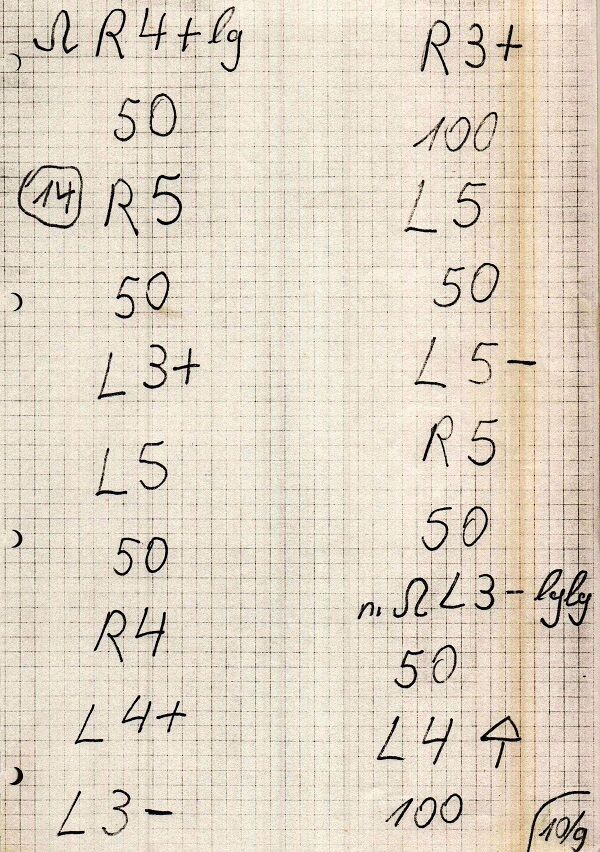 Ω R4+lg
50
14 R5
50
L3+
L5
50
R4
L4+
L3-
R3+
100
L5
50
L5-
R5
50
n. Ω L3- lglg
50
L4
100
10/g